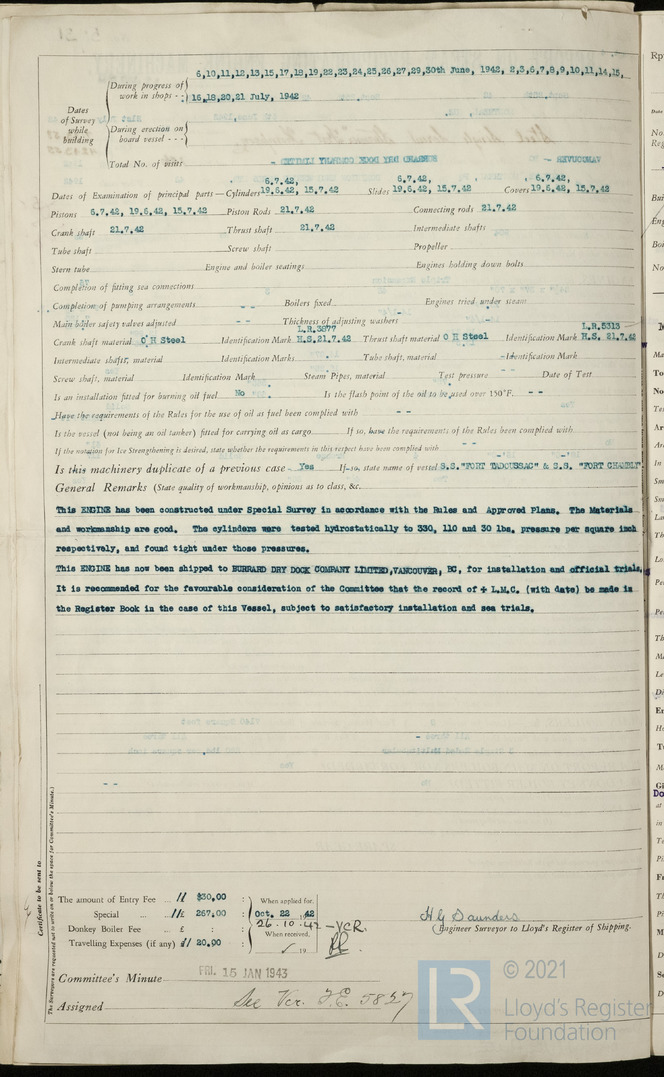 6,10,11,12,13,15,17,18,19,22,23,24,25,26,27,29,30th June, 1942, 2,3,6,7,8,9,10,11,14,15,
During progress of work in shops - - 16,18,20,21 July, 1942
Dates of Survey while building
During erection on board vessel - - -
Total No. of visits
Dates of Examination of principal parts—Cylinders 6.7.42, 19.6.42, 15.7.42 Slides 6.7.42, 19.6.42, 15.7.42 Covers 6.7.42, 19.6.42, 15.7.42
Pistons 6.7.42, 19.6.42, 15.7.42 Piston Rods 21.7.42 Connecting rods 21.7.42
Crank shaft 21.7.42 Thrust shaft 21.7.42 Intermediate shafts
Tube shaft Screw shaft Propeller
Stern tube Engine and boiler seatings Engines holding down bolts
Completion of fitting sea connections
Completion of pumping arrangements - - Boilers fixed Engines tried under steam
Main boiler safety valves adjusted - - Thickness of adjusting washers
Crank shaft material O H Steel Identification Mark L.R.3877 H.S.21.7.42 Thrust shaft material O H Steel Identification Mark L.R.5313 H.S. 21.7.42
Intermediate shafts, material Identification Marks Tube shaft, material Identification Mark
Screw shaft, material Identification Mark Steam Pipes, material Test pressure Date of Test
Is an installation fitted for burning oil fuel No Is the flash point of the oil to be used over 150°F. - -
Have the requirements of the Rules for the use of oil as fuel been complied with - -
Is the vessel (not being an oil tanker) fitted for carrying oil as cargo If so, have the requirements of the Rules been complied with
If the notation for Ice Strengthening is desired, state whether the requirements in this respect have been complied with - -
Is this machinery duplicate of a previous case Yes If so, state name of vessel S.S."FORT TADOUSSAC" & S.S. "FORT CHAMBLY"
General Remarks (State quality of workmanship, opinions as to class, &c.
This ENGINE has been constructed under Special Survey in accordance with the Rules and Approved Plans. The Materials
and workmanship are good. The cylinders were tested hydrostatically to 330, 110 and 30 lbs. pressure per square inch
respectively, and found tight under those pressures.
This ENGINE has now been shipped to BURRARD DRY DOCK COMPANY LIMITED,VANCOUVER, BC, for installation and official trials.
It is recommended for the favourable consideration of the Committee that the record of + L.M.C. (with date) be made in
the Register Book in the case of this Vessel, subject to satisfactory installation and sea trials.
Certificate to be sent to
The Surveyors are requested not to write on or below the space for Committee's Minute.)
The amount of Entry Fee $30.00 When applied for,
Special 267.00 Oct. 22 42
Donkey Boiler Fee £ 26.10.42 – VCR.
Travelling Expenses (if any) 20.00 When received, 19
H G Saunders
Engineer Surveyor to Lloyd's Register of Shipping.
Committee's Minute FRI. 15 JAN 1943
Assigned See Vcr. F.E. 5827
LR © 2021
Lloyd's Register
Foundation